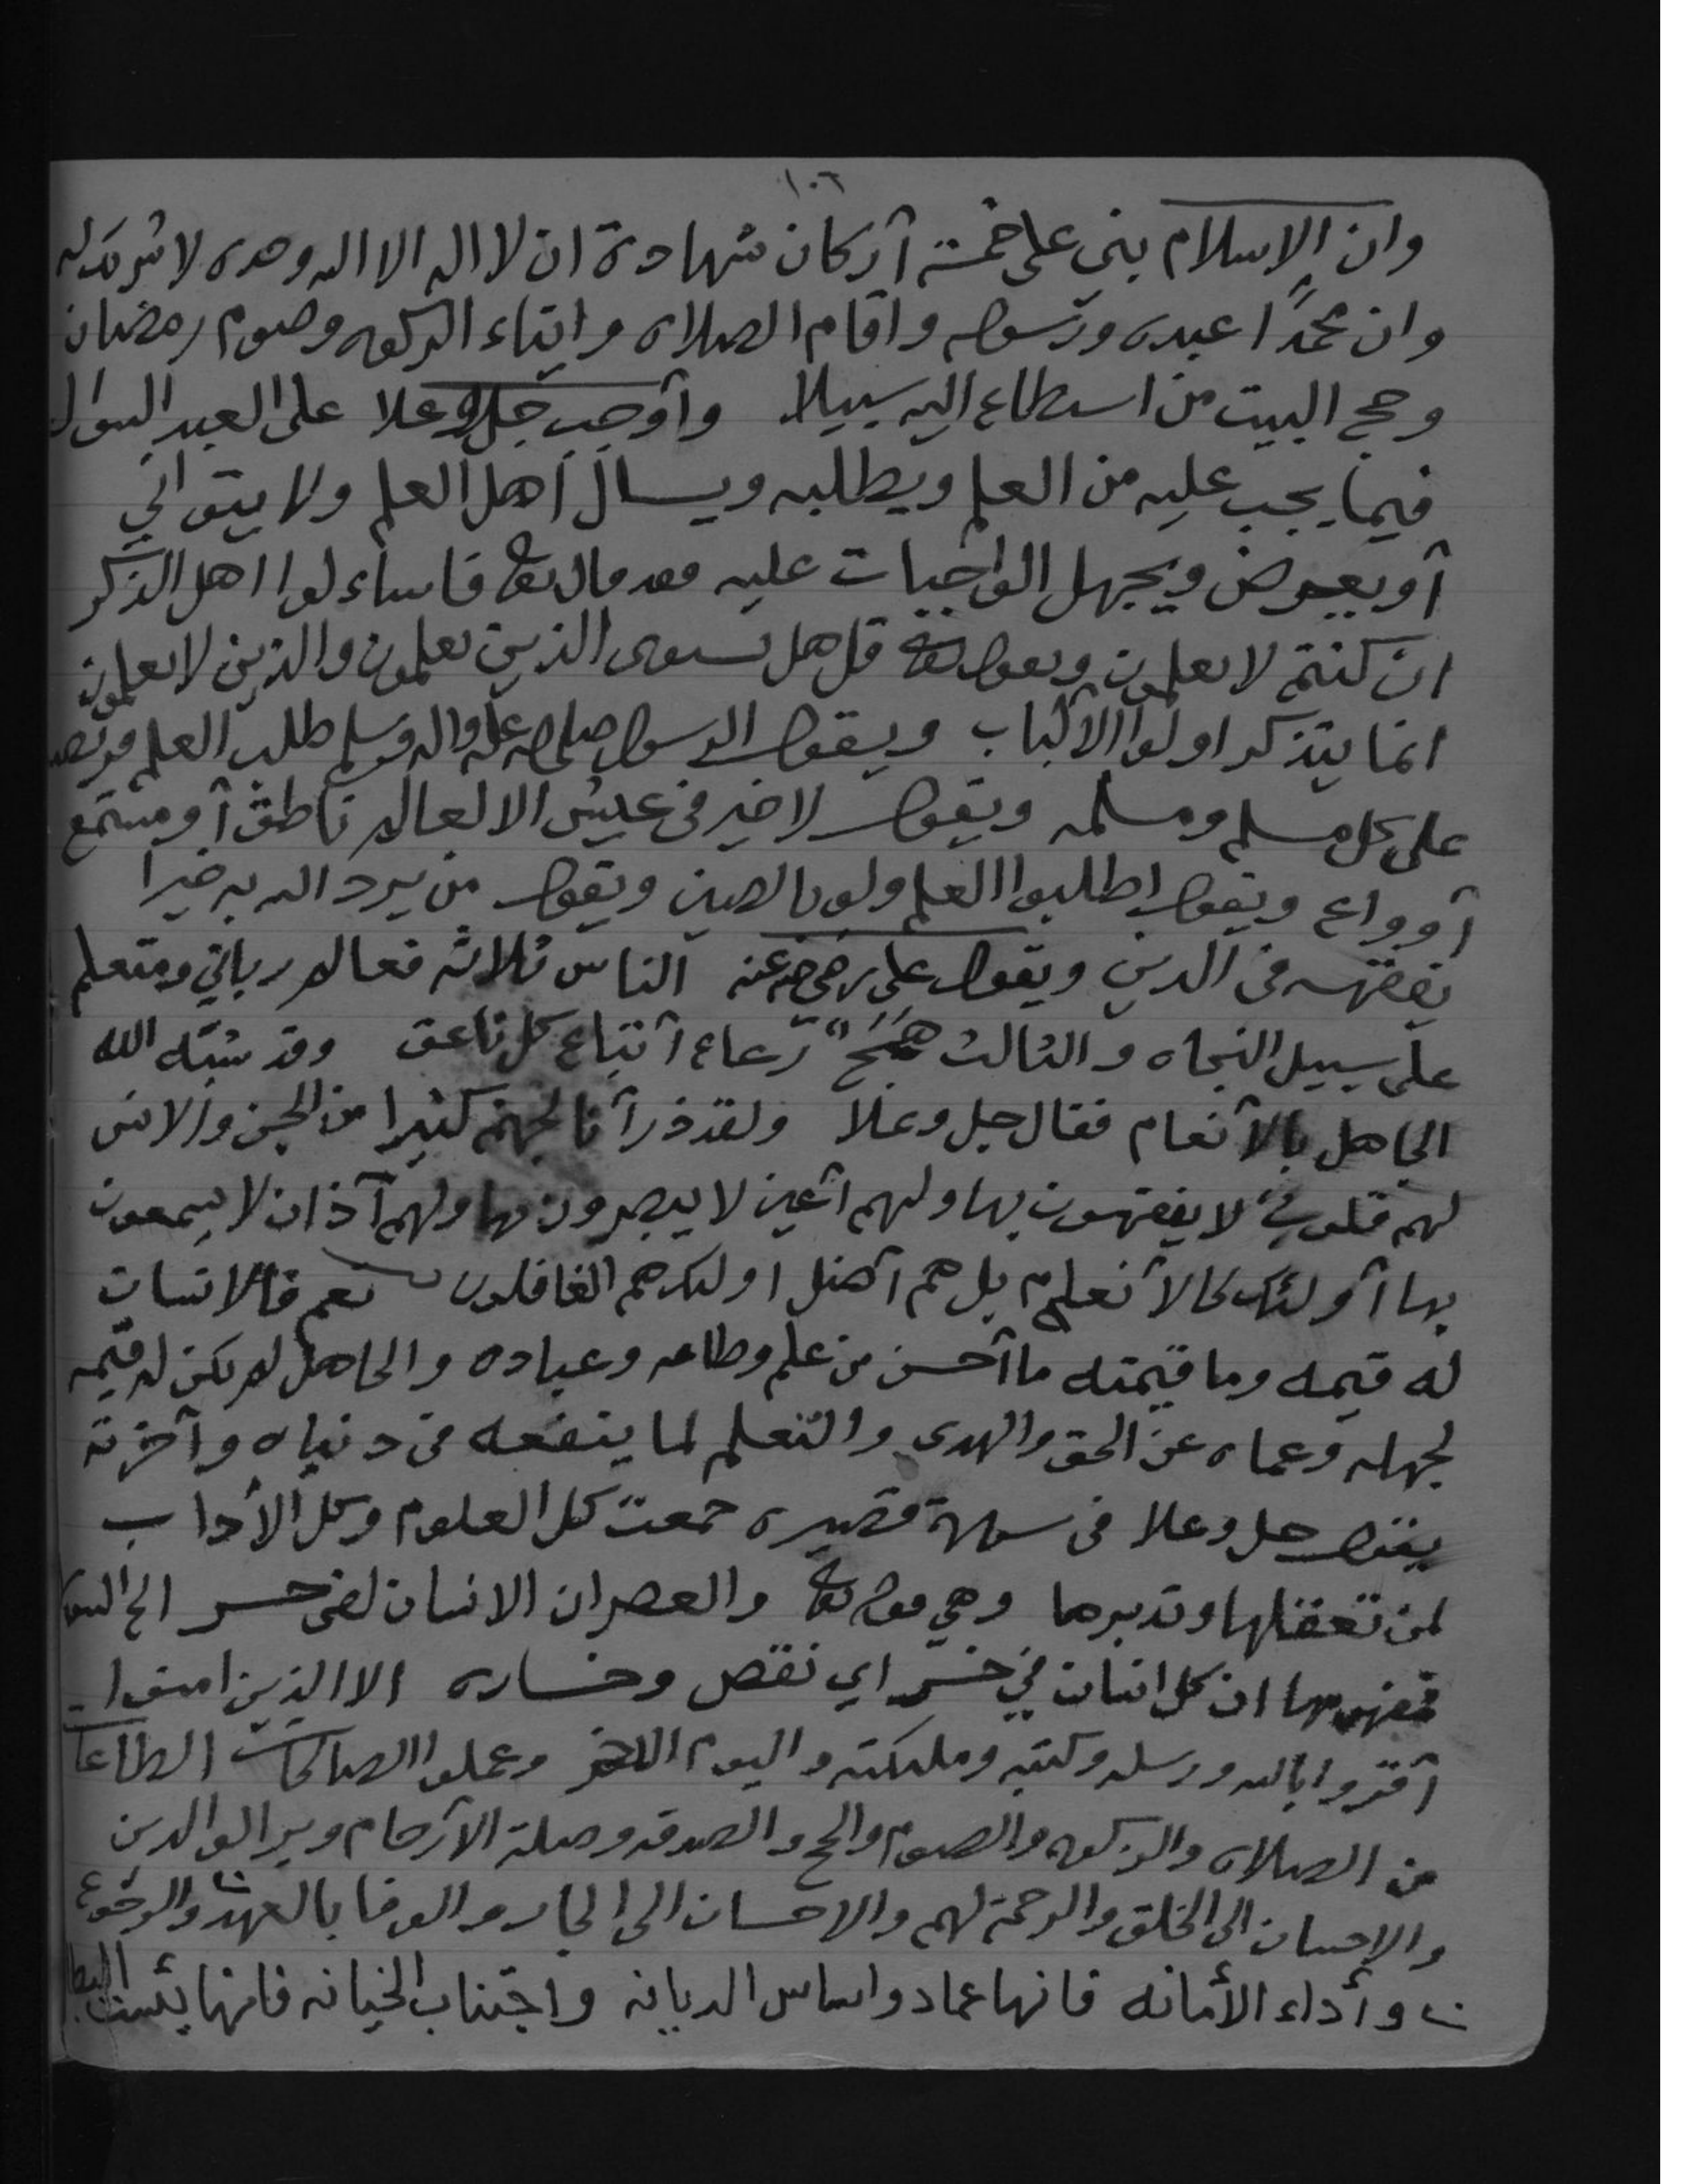 ١٠٦
وان الإسلام بني على خمسة أركان شهادة ان لا اله الا الله وحده لا شريك له
وان محمدًا عبده ورسوله واقام الصلاه وايتاء الزكوه وصوم رمضان
وحج البيت من استطاع اليه سبيلا وأوجب جل وعلا على العبد السوال
فيما يجب عليه من العلم ويطلبه ويسال أهل العلم ولا يتوانى
أو يعرض ويجهل الواجبات عليه فقد قال تعالى فاساء لوا اهل الذكر
ان كنتم لا تعلمون ويقول تعالى قل هل يستوى الذين يعلمون والذين لا يعلمون
انما يتذكر اولوا الألباب ويقول الرسول صلى الله عليه واله وسلم طلب العلم فريضه
على كل مسلم ومسلمه ويقول لا خير في عيش الا لعالم ناطق أو مستمع
أو واع ويقول اطلبوا العلم ولو بالصين ويقول من يرد الله به خيرا
يفقهه في الدين ويقول علي رضي الله عنه الناس ثلاثه فعالم رباني ومتعلم
على سبيل النجاه والثالث همج رعاع أتباع كل ناعق وقد شبّه الله
الجاهل بالأنعام فقال جل وعلا ولقد ذرأنا لجهنم كثيرا من الجن والانس
لهم قلوب لا يفقهون بها ولهم أعين لا يبصرون بها ولهم آذان لا يسمعون
بها أولئك كالأنعام بل هم أضل اولئك هم الغافلون نعم فالانسان
له قيمه وما قيمته ما أحسن من علم وطاعه وعباده والجاهل لم يكن له قيمه
لجهله وعماه عن الحق والهدى والتعلم لما ينفعه في دنياه وآخرته
يقول جل وعلا في سورة قصيره جمعت كل العلوم وكل الأداب
لمن تعقلها وتدبرها وهي قوله تعالى والعصر ان الانسان لفي خسر الخ السوره
فافهم منها ان كل انسان في خسر اي نقص وخساره الا الذين امنوا
أقروا بالله ورسله وكتبه وملئكته واليوم الاخر وعملوا الصالحات الطاعات
من الصلاه والزكوه والصوم والحج والصدقه وصلة الأرحام وبر الوالدين
والاحسان الى الخلق والرحمة لهم والاحسان الى الجار والوفا بالعهد والرجوع
وأداء الأمانه فانها عماد واساس الديانه واجتناب الخيانه فانها بئست